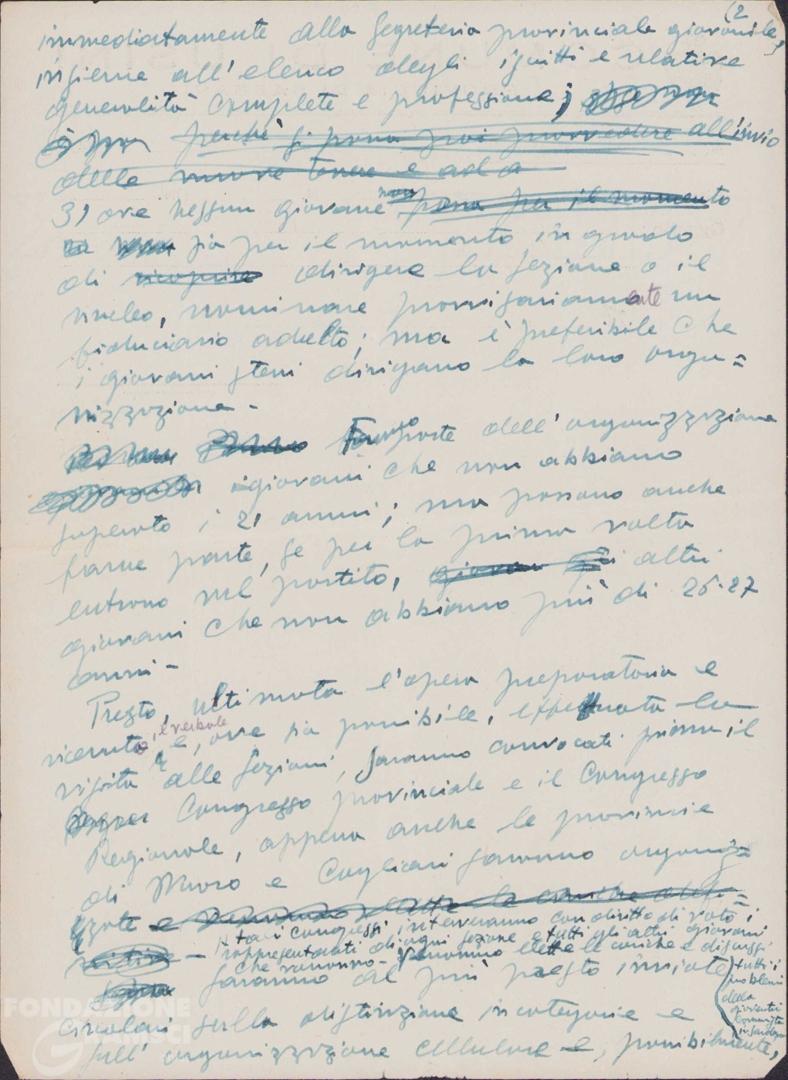 (2
immediatamente alla Segreteria provinciale giovanile,
insieme all'elenco degli iscritti e relative
generalità complete e professione;
perchè si possa poi provvedere all'invio
delle nuove tessere e ad a
3) ove nessun giovane non possa per il momento
sia per il momento in grado
di ricoprire dirigere la sezione o il
nucleo, nominare provvisoriamente un
fiduciario adulto; ma è preferibile che
i giovani stessi dirigano la loro orga=
nizzazione -
Fanno parte dell'organizzazione
i giovani che non abbiano
superato i 21 anni; ma possono anche
farne parte, se per la prima volta
entrano nel partito, giovani gli altri
giovani che non abbiano più di 26-27
anni -
Presto, ultimata l'opera preparatoria e
ricevuto il verbale, e, ove sia possibile, effettuata la
visita alle sezioni, saranno convocati prima il
Congresso provinciale e il Congresso
Regionale, appena anche le provincie
di Nuoro e Cagliari saranno organiz=
zate e
- tai congressi interveranno con diritto di voto i
rappresentanti di ogni sezione e tutti gli altri giovani
che vorranno - Verranno elette le cariche e discussi
tutti i
problemi
della
gioventù
comunista
in Sardegna
Saranno al più presto inviate
circolari sulla distinzione in categorie e
sull'organizzazione cellulare e, possibilmente,
FONDAZIONE
GRAMSCI